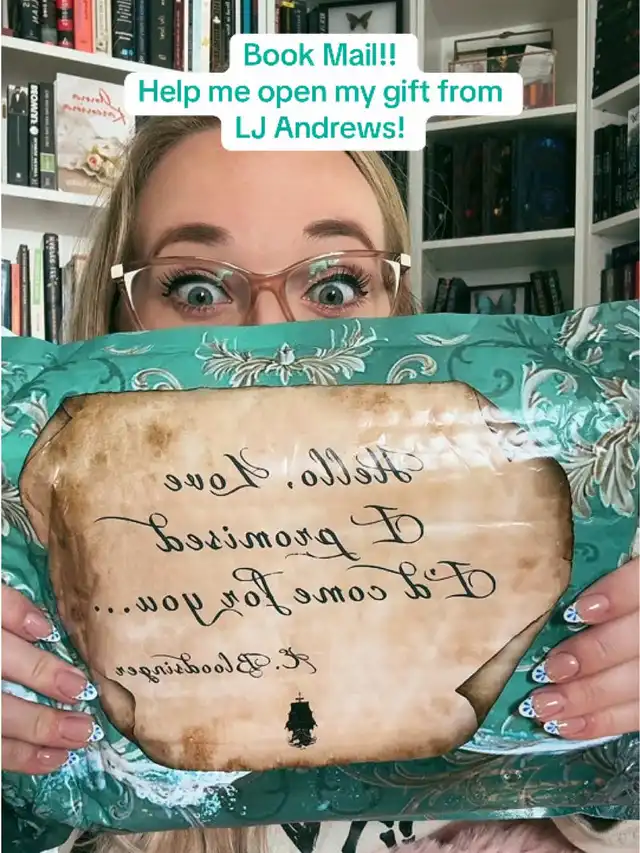 Book Mail!!
Help me open my gift from
LJ Andrews!
Anna
Karenina
Hello, Love
I promised
I'd come for you...
K. Bloodsinger